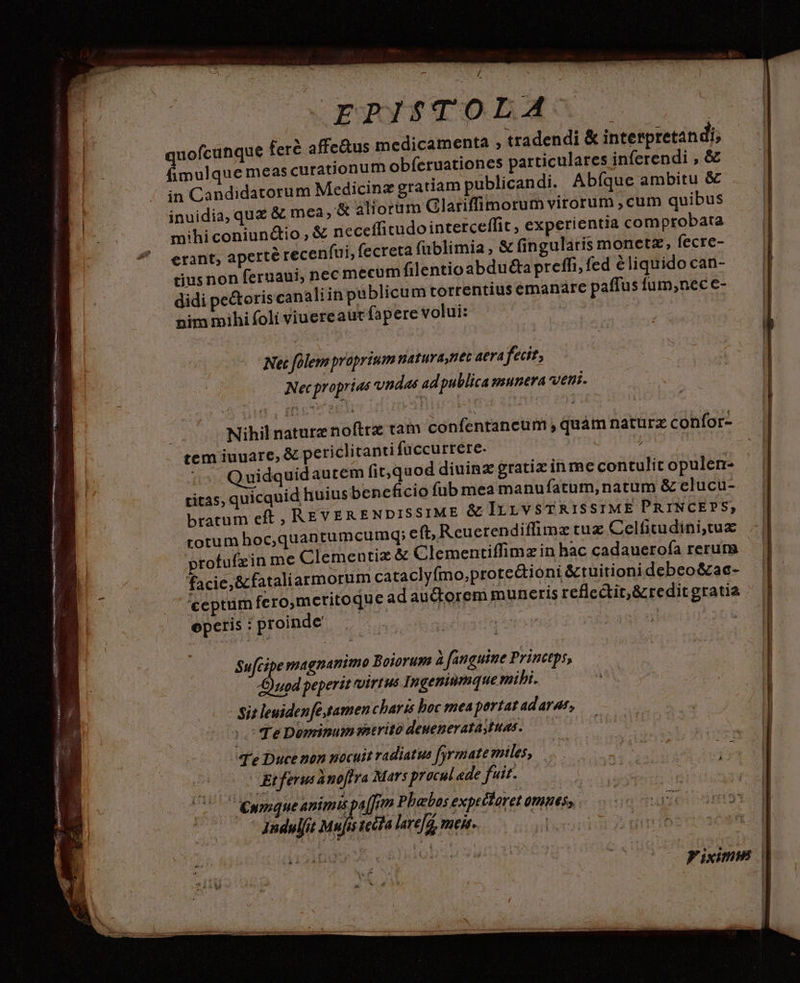 EPISTOLA
quoſcunque ferè affectus medicamenta , tradendi & interpretandi,
ſimulque meas curationum obſeruationes particulares inſerendi , &
in Candidatorum Medicinæ gratiam publicandi. Abſque ambitu &
inuidia, quæ & mea, & aliorum Clariſſimorum virorum , cum quibus
mihi coniunctio , & neceſſitudo interceſſit , experientia comprobata
erant, apertè recenſui, ſecreta ſublimia , & ſingularis monetæ, ſecre-
tius non ſeruaui, nec mecum ſilentio abducta preſſi, ſed è liquido can-
didi pectoris canali in publicum torrentius emanare paſſus ſum, nec e-
nim mihi ſoli viuere aut ſapere volui:
Nec ſolem proprium natura, nec aera fecit,
Nec proprias vndas ad publica munera veni.
Nihil naturæ noſtræ tam conſentaneum , quàm naturæ conſor-
tem iuuare, & periclitanti ſuccurrere.
Quidquid autem ſit, quod diuinæ gratiæ in me contulit opulen-
titas, quicquid huius beneficio ſub mea manu ſatum, natum & elucu-
bratum eſt , REVERENDISSIME & ILLVSTRISSIME PRINCEPS,
totum hoc, quantumcumq; eſt, Reuerendiſſimæ tuæ Celſitudini, tuæ
profuſæ in me Clementiæ & Clementiſſimæ in hac cadaueroſa rerum
facie, & fatali armorum cataclyſmo, protectioni & tuitioni debeo & ac-
ceptum fero, meritoque ad auctorem muneris reflectit, & redit gratia
operis : proinde
Suſcipe magnanimo Boiorum à ſanguine Princeps,
Quod peperit virtus Ingeniumque mihi.
Sit leuidenſe, tamen charis hoc mea portat ad aras,
Te Dominum merito deuenerata, tuas.
Te Duce non nocuit radiatus ſyrmate miles,
Et ferus à noſtra Mars procul æde fuit.
Cumque animis paſſim Phœbos expectoret omnes,
Indulſit Muſis tecta lareſq́, meis.
Viximus